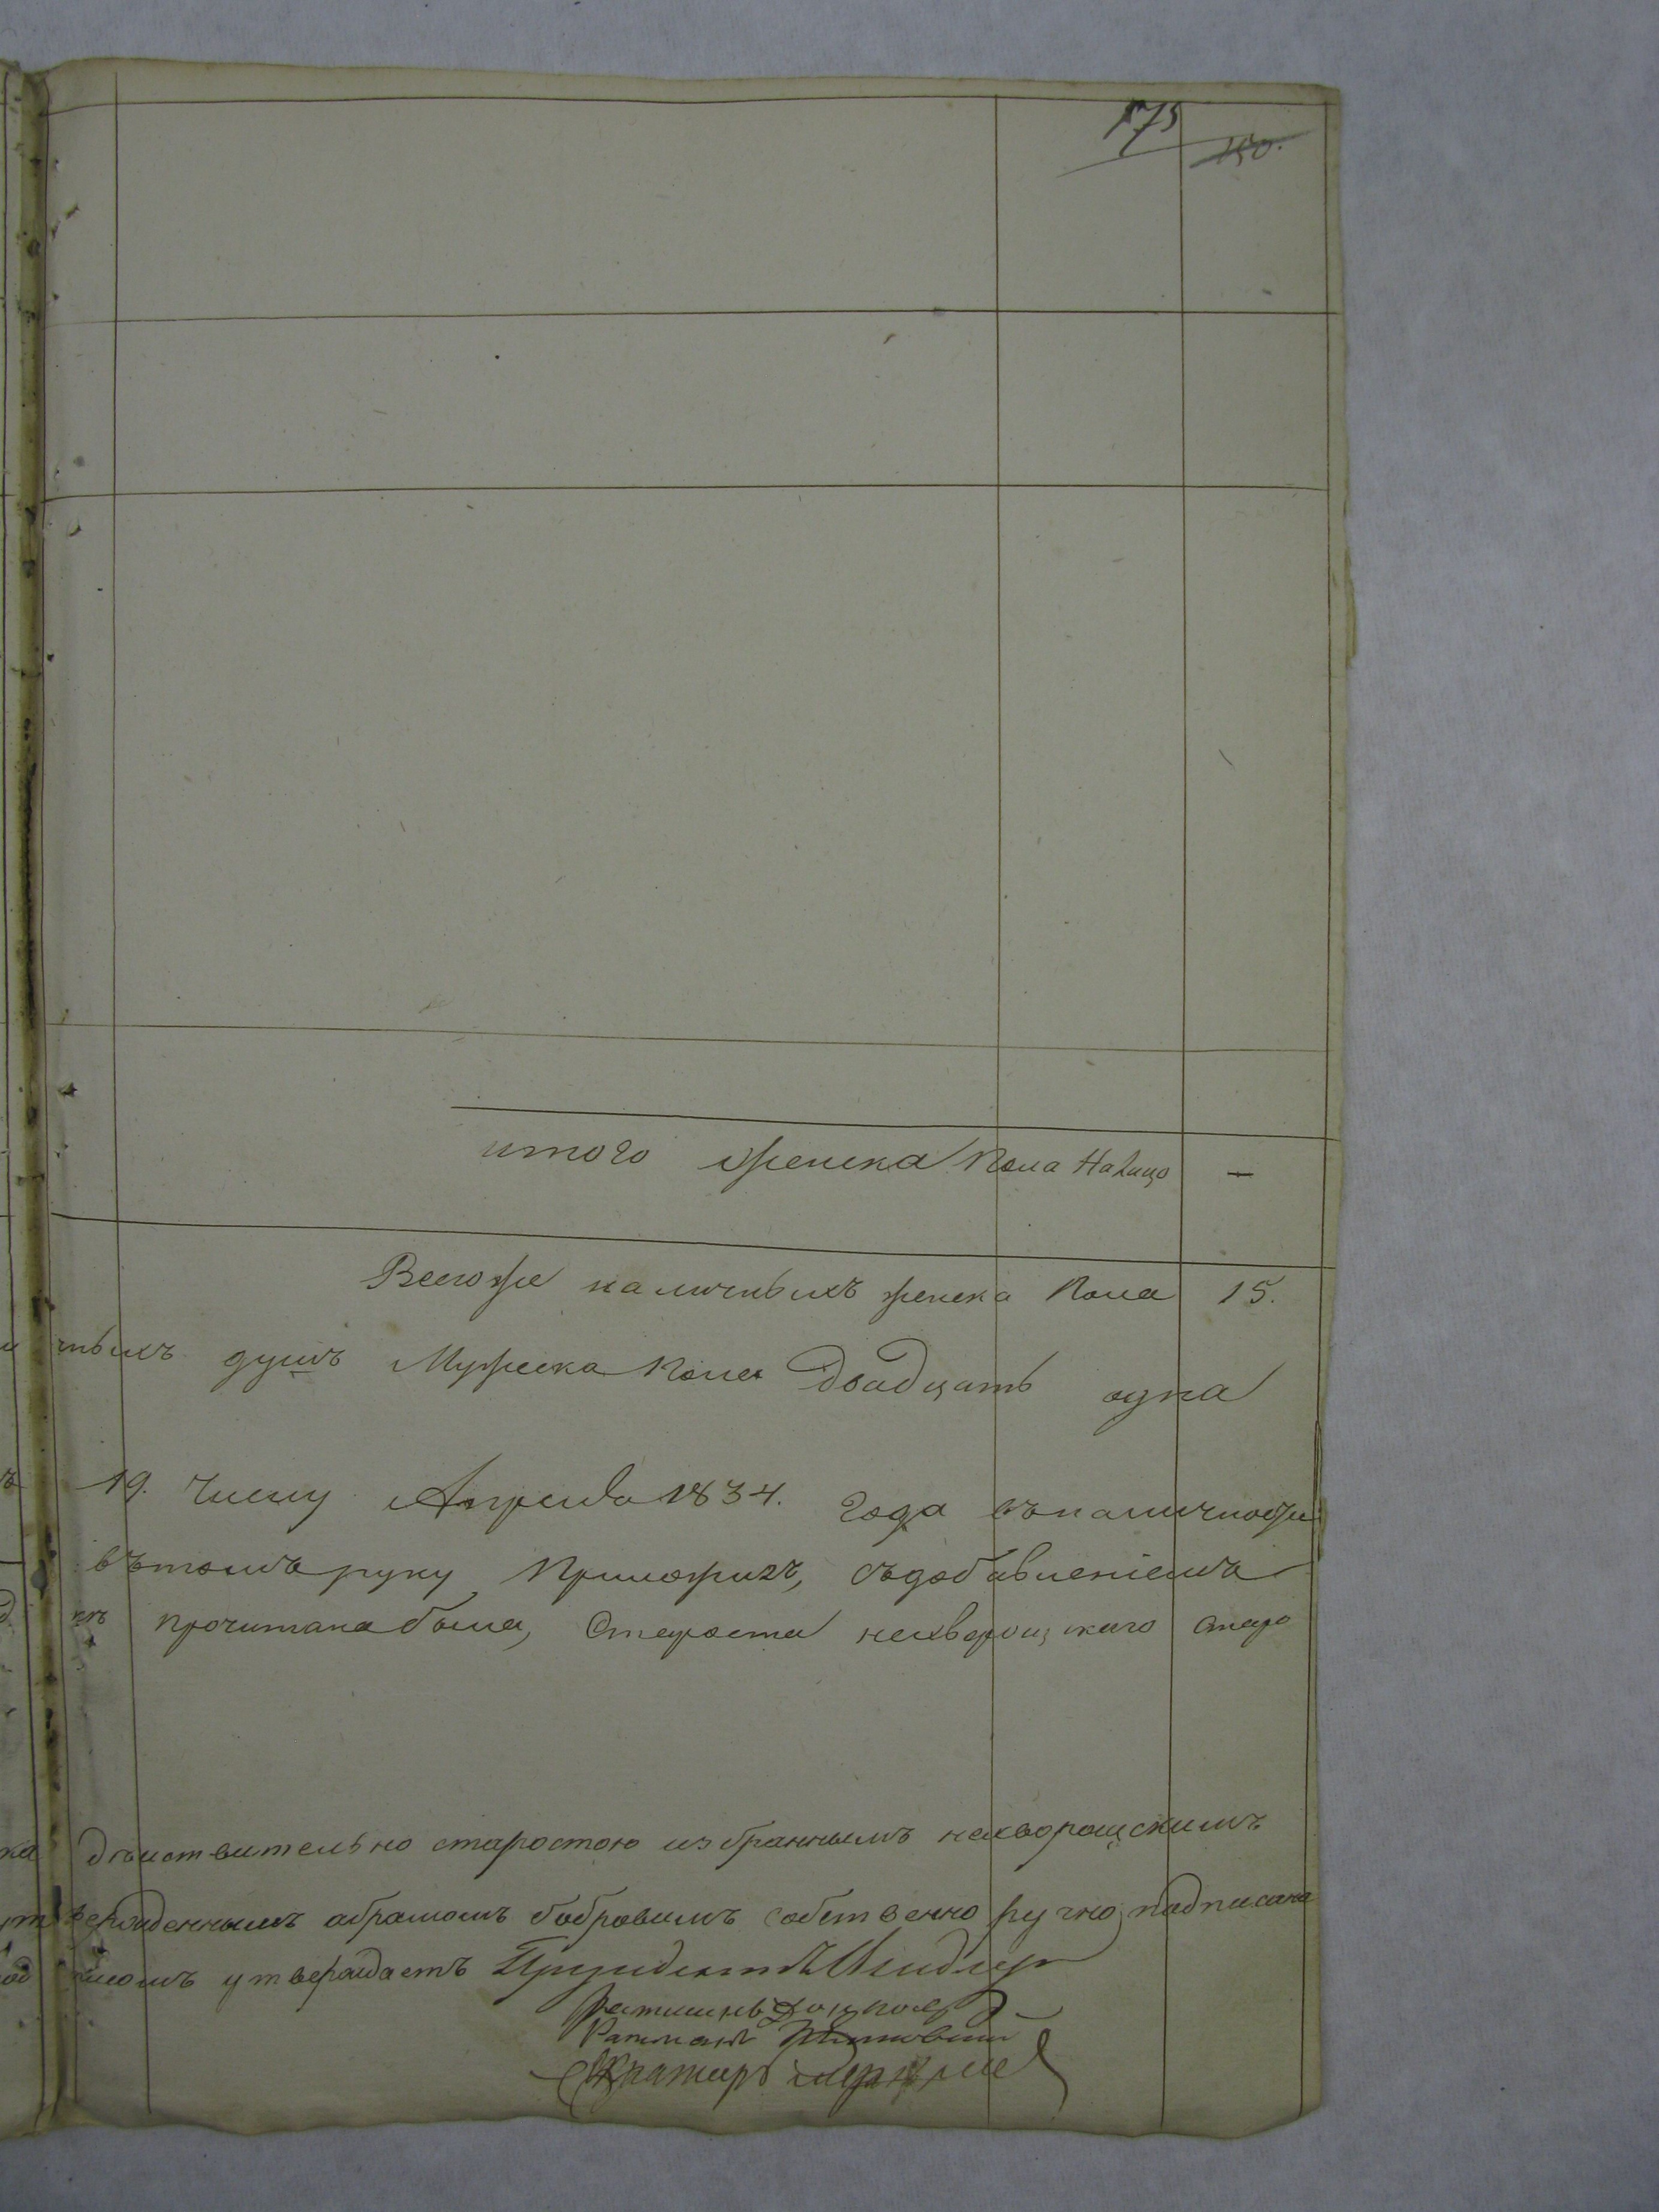 175
150.
итого женска пола На лицо —
Всего же наличныхъ женска пола 15.
тныхъ душъ Мужеска пола двадцать одна
19. Числу Апреля 1834. Года въ наличности
въ томъ руку приложилъ, съ добавленіемъ
прочитана была, Староста нехворощскаго Старо
действительно старостою избраннымъ нехворощскимъ
утвержденнымъ абрамомъ бобровымъ собственно ручно надписана
утверждаетъ Президентъ
Ратманъ
Ратманъ